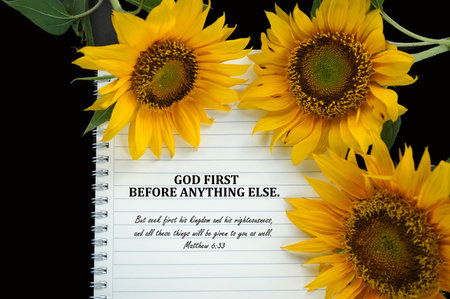 GOD FIRST
BEFORE ANYTHING ELSE.
But seek first his kingdom and his righteousness,
and all these things will be given to you as well.
Matthew 6:33